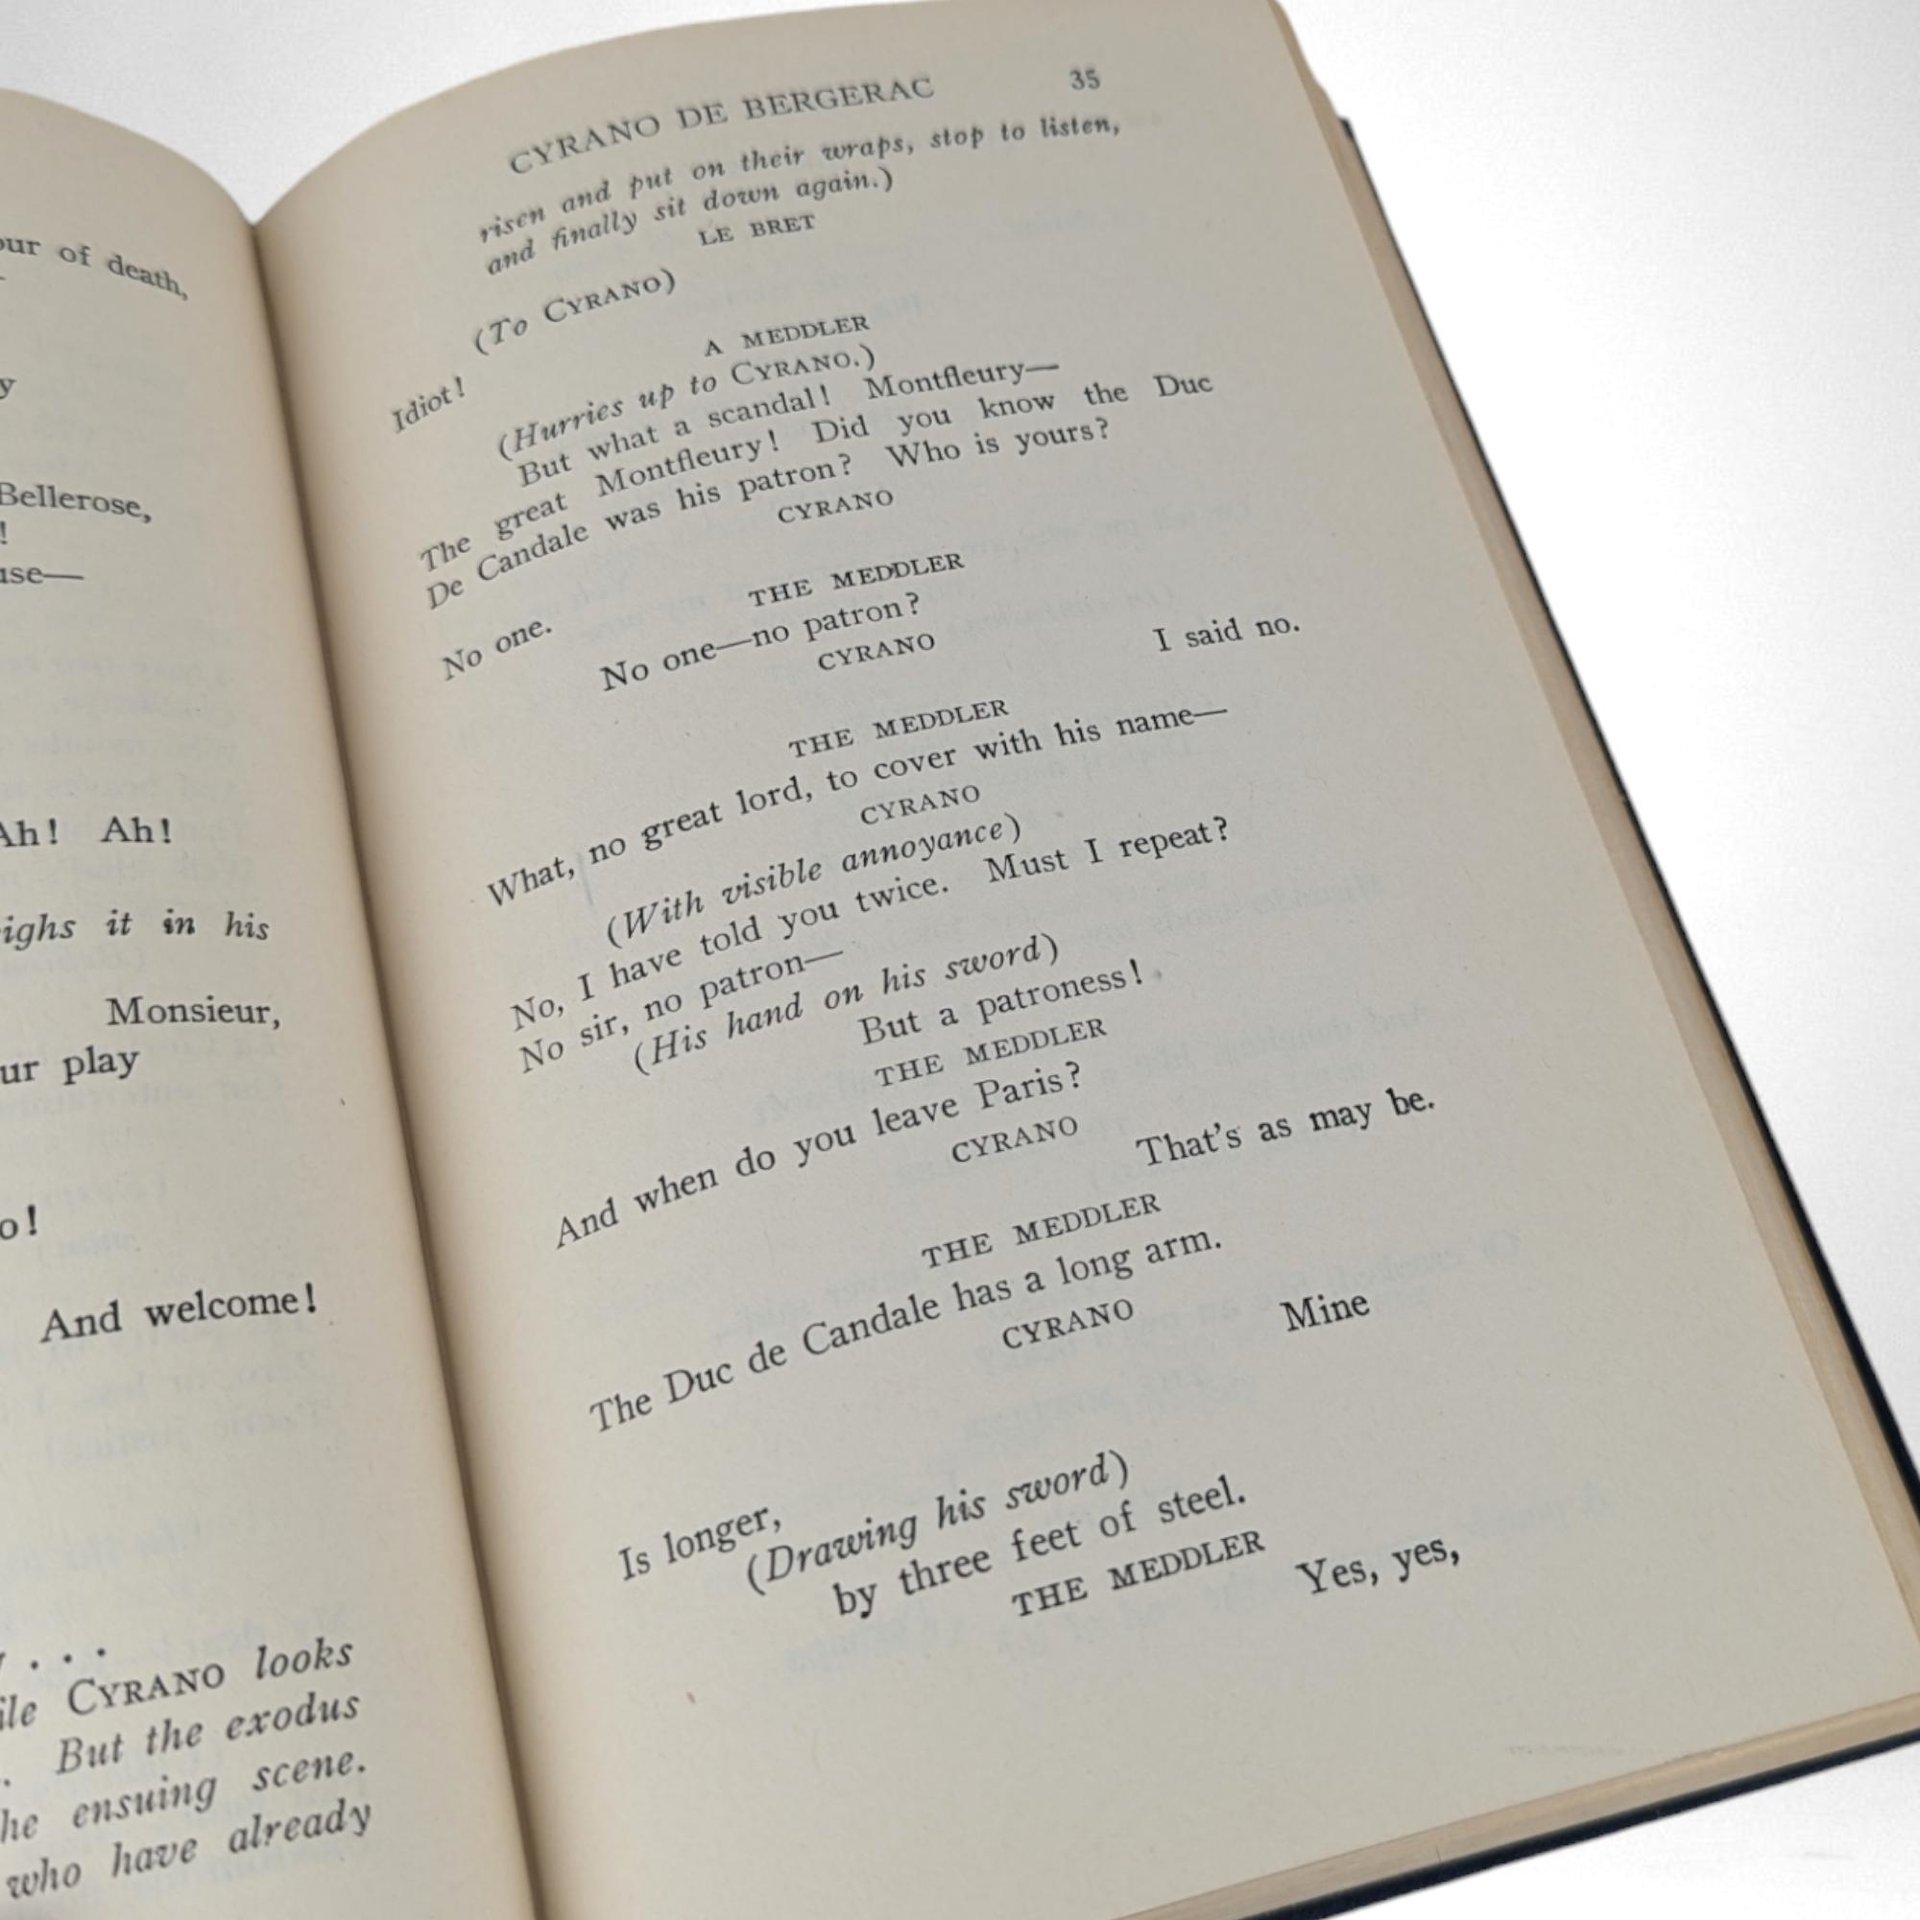 our of death,
y
Bellerose,
!
use—
Ah! Ah!
ighs it in his
Monsieur,
ur play
o!
And welcome!
. . .
ile CYRANO looks
. But the exodus
he ensuing scene.
who have already
CYRANO DE BERGERAC 35
risen and put on their wraps, stop to listen,
and finally sit down again.)
LE BRET
(To CYRANO)
Idiot!
A MEDDLER
(Hurries up to CYRANO.)
But what a scandal! Montfleury—
The great Montfleury! Did you know the Duc
De Candale was his patron? Who is yours?
CYRANO
No one.
THE MEDDLER
No one—no patron?
CYRANO
I said no.
THE MEDDLER
What, no great lord, to cover with his name—
CYRANO
(With visible annoyance)
No, I have told you twice. Must I repeat?
No sir, no patron—
(His hand on his sword)
But a patroness!
THE MEDDLER
And when do you leave Paris?
CYRANO
That's as may be.
THE MEDDLER
The Duc de Candale has a long arm.
CYRANO
Mine
Is longer,
(Drawing his sword)
by three feet of steel.
THE MEDDLER
Yes, yes,